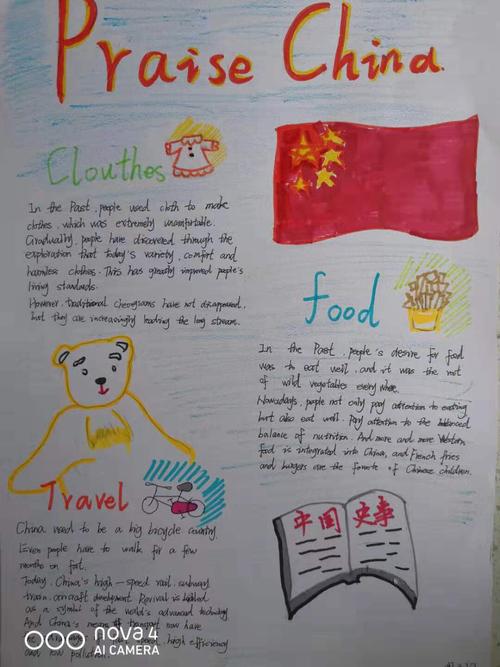 Praise China
Clouthes
In the Past, people used cloth to make
clothes, which was extremely uncomfortable.
Gradually, people have discovered through the
exploration that today's variety, comfort and
harmless clothes. This has greatly improved people's
living standards.
However, traditional cheongsams have not disappeared,
but they are increasingly leading the long stream.
food
In the Past, people's desire for food
was to eat well, and it was the root
of wild vegetables every where.
Nowadays, people not only pay attention to
but also eat well. Pay attention to the balanced
balance of nutrition. And more and more Western
food is integrated into China, and French fries
and burgers are the favorite of Chinese children.
Travel
China used to be a big bicycle country.
Even people have to walk for a few
months on foot.
Today, China's high-speed rail, subway
train, aircraft development Revival is
as a symbol of the world's advanced technology
And China's means of transport now have
high efficiency
and low pollution.
中国 史事
nova 4
AI CAMERA